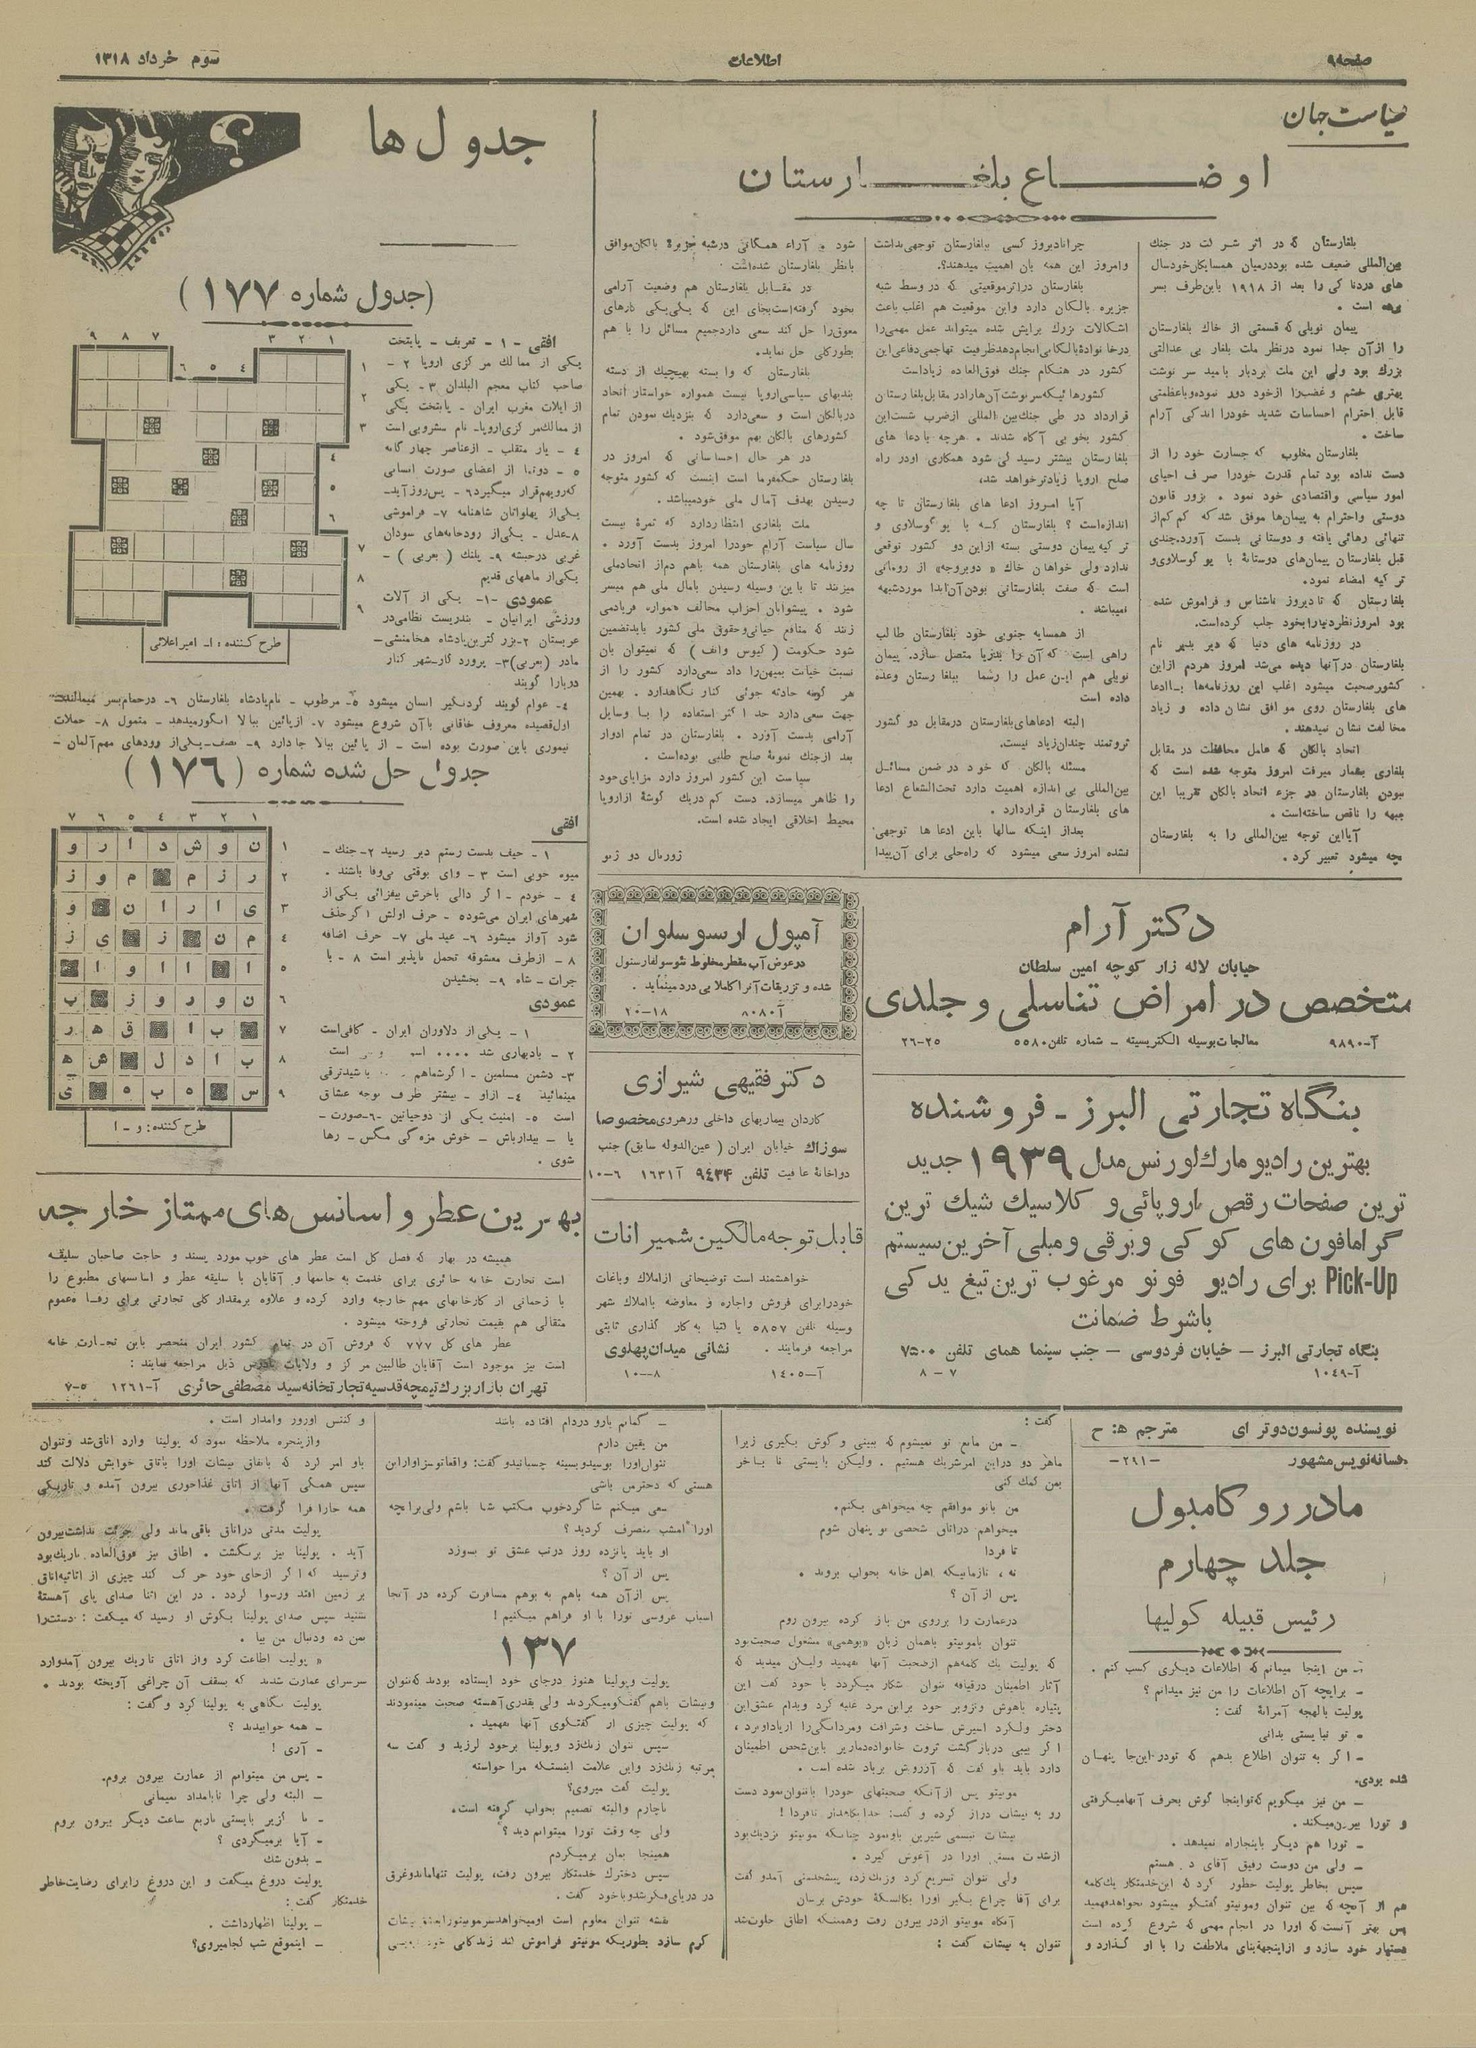 صفحه۹
اطلاعات
سوم خرداد ۱۳۱۸
سیاست جهان
اوضاع بلغارستان
بلغارستان که در اثر شرکت در جنگ
بین‌المللی ضعیف شده بود درمیان همسایگان خود سال
های دردناکی را بعد از ۱۹۱۸ باین‌طرف بسر
برده است .
پیمان نویلی که قسمتی از خاك بلغارستان
را ازآن جدا نمود درنظر ملت بلغار بی عدالتی
بزرك بود ولی این ملت بردبار بامید سر نوشت
بهتری خشم و غضب‌را ازخود دور نموده وباعظمتی
قابل احترام احساسات شدید خودرا اندکی آرام
ساخت .
بلغارستان مغلوب که جسارت خود را از
دست نداده بود تمام قدرت خودرا صرف احیای
امور سیاسی واقتصادی خود نمود . بزور قانون
دوستی واحترام به پیمان‌ها موفق شد که کم کم از
تنهائی رهائی یافته و دوستانی بدست آورد.چندی
قبل بلغارستان پیمان‌های دوستانهٔ با یو گوسلاوی و
تر کیه امضاء نمود.
بلغارستان که تا دیروز ناشناس و فراموش شده
بود امروز نظر دنیارا بخود جلب کرده‌است.
در روزنامه های دنیا که دیر بدیر نام
بلغارستان درآنها دیده می‌شد امروز هردم ازاین
کشور صحبت میشود اغلب این روزنامه‌ها با ادعا
های بلغارستان روی موافق نشان داده و زیاد
مخالفت نشان نمیدهند.
اتحاد بالکان که عامل محافظت در مقابل
بلغاری بشمار میرفت امروز متوجه شده است که
نبودن بلغارستان در جزء اتحاد بالکان تقریبا این
جبهه را ناقص ساخته‌است .
آیااین توجه بین‌المللی را به بلغارستان
چه میشود تعبیر کرد .
چرا تا دیروز کسی ببلغارستان توجهی نداشت
وامروز این همه بآن اهمیت میدهند؟.
بلغارستان دراثر موقعیتی که در وسط شبه
جزیره بالکان دارد واین موقعیت هم اغلب باعث
اشکالات بزرك برایش شده میتواند عمل مهمی‌را
درخانوادهٔ بالکانی انجام دهد ظرفیت تهاجمی دفاعی این
کشور در هنگام جنك فوق‌العاده زیاد است
کشورهائیکه سر نوشت آن‌ها را در مقابل بلغارستان
قرارداد در طی جنك بین المللی ازضرب شست این
کشور بخوبی آگاه شدند . هرچه بادعا های
بلغارستان بیشتر رسیدگی شود همکاری اودر راه
صلح اروپا زیادتر خواهد شد،
آیا امروز ادعا های بلغارستان تا چه
اندازه‌است ؟ بلغارستان که با یو گوسلاوی و
تر کیه پیمان دوستی بسته ازاین دو کشور توقعی
ندارد ولی خواهان خاك « دوبروجه» از رومانی
است که صفت بلغارستانی بودن آن ابدا مورد شبهه
نمیباشد .
از همسایه جنوبی خود بلغارستان طالب
راهی است که آن را بدریا متصل سازد. پیمان
نویلی هم این عمل را رسما ببلغارستان وعده
داده است
البته ادعاهای بلغارستان درمقابل دو کشور
ثروتمند چندان زیاد نیست.
مسئله بالکان که خود در ضمن مسائل
بین‌المللی بی اندازه اهمیت دارد تحت‌الشعاع ادعا
های بلغارستان قرار دارد .
بعداز اینکه سالها باین ادعا ها توجهی
نشده امروز سعی میشود که راه‌حلی برای آن پیدا
شود . آراء همگانی درشبه جزیرهٔ بالکان موافق
بانظر بلغارستان شده است .
در مقابل بلغارستان هم وضعیت آرامی
بخود گرفته‌است بجای این که یکی‌یکی کارهای
معوق‌را حل کند سعی دارد جمیع مسائل را با هم
بطور کلی حل نماید.
بلغارستان که وابسته بهیچیك از دسته
بندیهای سیاسی اروپا نیست همواره خواستار اتحاد
دربالکان است و سعی‌دارد که بنزدیك نمودن تمام
کشورهای بالکان بهم موفق‌شود .
در هر حال احساساتی که امروز در
بلغارستان حکمفرما است اینست که کشور متوجه
رسیدن بهدف آمال ملی خود میباشد .
ملت بلغاری انتظار دارد که ثمرهٔ بیست
سال سیاست آرام خودرا امروز بدست آورد .
روزنامه های بلغارستان همه باهم دم‌از اتحادملی
میزنند تا باین وسیله رسیدن بآمال ملی هم میسر
شود . پیشوایان احزاب مخالف همواره فریاد می
زنند که منافع حیاتی وحقوق ملی کشور باید تضمین
شود حکومت ( کیوس وانف ) که نمیتوان بآن
نسبت خیانت بمیهن‌را داد سعی‌دارد کشور را از
هر گونه حادثه جوئی کنار نگاهدارد . بهمین
جهت سعی دارد حد اکثر استفاده را با وسایل
آرامی بدست آورد . بلغارستان در تمام ادوار
بعد ازجنك نمونهٔ صلح طلبی بوده‌است .
سیاست این کشور امروز دارد مزایای خود
را ظاهر میسازد. دست کم دریك گوشهٔ ازاروپا
محیط اخلاقی ایجاد شده است.
ژورنال دو ژنو
جدول ها
؟
(جدول شماره ۱۷۷)
افقی - ۱ - تعریف - پایتخت
یکی از ممالك مرکزی اروپا ۲ -
صاحب کتاب معجم البلدان ۳- یکی
از ایلات مغرب ایران - پایتخت یکی
از ممالك مرکزی اروپا- نام مشروبی است
۴ - یار منقلب - ازعناصر چهارگانه
۵ - دوتا از اعضای صورت انسانی
که رویهم قرار میگیرد ۶- پس‌روز آید-
یکی‌از پهلوانان شاهنامه ۷- فراموشی
۸-عدل - یکی‌از رودخانه‌های سودان
غربی درحبشه ۹- پلنك ( بعربی ) -
یکی‌از ماههای قدیم
عمودی -۱- یکی از آلات
ورزشی ایرانیان - بندریست نظامی در
عربستان ۲- بزرگترین پادشاه هخامنشی-
مادر (بعربی) ۳- پرورد گار-شهر کنار
دریارا گویند
۴- عوام گویند گردنگیر انسان میشود ۵- مرطوب - نام پادشاه بلغارستان ۶- درحمام بسر میمالند-
اول‌قصیده معروف خاقانی باآن شروع میشود ۷- ازپائین ببالا انگور میدهد - متمول ۸- حملات
تیموری باین صورت بوده است - از پائین ببالا جا دارد ۹- نصف-یکی‌از رودهای مهم آلمان -
۹ ۸ ۷ ۶ ۵ ۴ ۳ ۲ ۱
۱
۲
۳
۴
۵
۶
۷
۸
۹
طرح کننده : ا- امیر اعلائی
جدول حل شده شماره (۱۷۶)
افقی
۱ - حیف بدست رستم دیر رسید ۲- جنك -
میوه خوبی است ۳ - وای بوقتی بی‌وفا باشند .
۴ - خودم - اگر دالی باخرش بیفزائی یکی از
شهرهای ایران می‌شود۵ - حرف اولش اگر حذف
شود آواز میشود ۶- عید ملی ۷- حرف اضافه
۸ - ازطرف معشوقه تحمل ناپذیر است ۸ - با
جرات - شاه ۹- بخشیدن
عمودی
۱ - یکی از دلاوران ایران - کافی‌است
۲ - بادبهاری شد
۳- دشمن مسلمین -
مینمائید ۴- ازاو - بیشتر طرف توجه عشاق
است ۵- امنیت یکی از دوحیاتین -۶-صورت-
یا - بیدارباش - خوش مزه گی مگس - رها
شوی .
۷ ۶ ۵ ۴ ۳ ۲ ۱
۱ ن و ش د ا ر و
۲ ر ز م م و ز
۳ ی ا ر ا ن و
۴ م ن ز ی ز
۵ ا ا ا و ا
۶ ن و ر و ز ب
۷ ب ا ق ه ر
۸ ب ا د ل ش ه
۹ س ه ب ه ی
طرح کننده : و - ا
آمپول ارسوسلوان
درعوض آب مقطر مخلوط نئوسولفارسنول
شده و تزریقات آنرا کاملا بی درد مینماید .
آ-۸۰۸۰
۲۰-۱۸
دکتر آرام
خیابان لاله زار کوچه امین سلطان
متخصص در امراض تناسلی و جلدی
معالجات بوسیله الکتریسیته - شماره تلفن ۵۵۸۰
آ-۹۸۹۰
۲۶-۲۵
دکتر فقیهی شیرازی
کاردان بیماریهای داخلی و رهروی مخصوصا
سوزاك خیابان ایران ( عین‌الدوله سابق) جنب
دواخانهٔ عافیت تلفن ۹۴۳۴ آ ۱۶۳۱ ۶-۱۰
بنگاه تجارتی البرز - فروشنده
بهترین رادیو مارك لورنس مدل ۱۹۳۹ جدید
ترین صفحات رقص اروپائی و کلاسیك شیك ترین
گرامافون های کوکی و برقی و مبلی آخرین سیستم
Pick-Up برای رادیو فونو مرغوب ترین تیغ یدکی
باشرط ضمانت
بنگاه تجارتی البرز - خیابان فردوسی - جنب سینما همای تلفن ۷۵۰۰
آ-۱۰۴۹
۷ - ۸
قابل توجه مالکین شمیرانات
خواهشمند است توضیحاتی ازاملاك وباغات
خودرا برای فروش واجاره و معاوضه باملاك شهر
وسیله تلفن ۵۸۵۷ یا کتبا به کار گذاری ثابتی
مراجعه فرمایند . نشانی میدان پهلوی
آ-۱۴۰۵
۸-۱۰
بهترین عطر و اسانس های ممتاز خارجه
همیشه در بهار که فصل گل است عطر های خوب مورد پسند و حاجت صاحبان سلیقه
است تجارت خانه حائری برای خدمت به خانمها و آقایان با سلیقه عطر و اسانسهای مطبوع را
با زحماتی از کارخانهای مهم خارجه وارد کرده و علاوه برمقدار کلی تجارتی برای رفاه عموم
مثقالی هم بقیمت تجارتی فروخته میشود .
عطر های گل ۷۷۷ که فروش آن در تمام کشور ایران منحصر باین تجارت خانه
است نیز موجود است آقایان طالبین مرکز و ولایات بآدرس ذیل مراجعه نمایند :
تهران بازار بزرك تیمچه قدسیه تجارتخانه سید مصطفی حائری آ-۱۲۶۱ ۵-۷
نویسنده پونسون دوترای مترجم ه: ح
فسانه نویس مشهور -۲۹۱-
مادر رو کامبول
جلد چهارم
رئیس قبیله کولیها
- من اینجا میمانم که اطلاعات دیگری کسب کنم .
- برایچه آن اطلاعات را من نیز میدانم ؟
پولیت بالهجه آمرانهٔ گفت :
- تو نبایستی بدانی
- اگر به تنوان اطلاع بدهم که تودر این‌جا پنهان
شده بودی.
- من نیز میگویم که تواینجا گوش بحرف آنها میگرفتی
و تورا بیرون‌میکند .
- تورا هم دیگر باینجا راه نمیدهد .
- ولی من دوست رفیق آقای
سپس بخاطر پولیت خطور کرد که این خدمتکار یك کلمه
هم از آنچه که بین تنوان ومونیتو گفتگو میشود نخواهد فهمید
پس بهتر آنست که اورا در انجام مهمی که شروع کرده است
دستیار خود سازد و ازاینجهة بنای ملاطفت را با او گذارد و
گفت :
- من مانع تو نمیشوم که ببینی و گوش بگیری زیرا
ماهر دو دراین امر شریك هستیم . ولیکن بایستی تا بآخر
بمن کمك کنی
من باتو موافقم چه میخواهی بکنم.
میخواهم دراتاق شخصی تو پنهان شوم
تا فردا
نه ، تازمانیکه اهل خانه بخواب بروند .
پس از آن ؟
درعمارت را برروی من باز کرده بیرون روم
تنوان بامونیتو باهمان زبان «بوهمی» مشغول صحبت بود
که پولیت یك کلمه‌هم ازصحبت آنها نفهمید ولیکن میدید که
آثار اطمینان درقیافه تنوان آشکار میگردد با خود گفت این
پتیاره باهوش وتزویر خود براین مرد غلبه کرد وبدام عشق این
دختر ولگرد اسیرش ساخت وشرافت ومردانگی‌را ازیاد او برد ،
اگر بیبی دربازگشت ثروت خانواده دماریر باین شخص اطمینان
دارد باید باو گفت که آرزویش برباد شده است .
مونیتو پس ازآنکه صحبتهای خودرا با تنوان نمود دست
رو به نیشات دراز کرده و گفت: خدا نگاهدار تا فردا !
نیشات تبسمی شیرین باو نمود چنانکه مونیتو نزدیك بود
ازشدت اورا در آغوش گیرد .
ولی تنوان تسریع کرد وزنك زد، پیشخدمتی آمد و گفت
برای آقا چراغ بگیر اورا بکالسکهٔ خودش برسان
آنگاه مونیتو ازدر بیرون رفت وهمینکه اطاق خلوت شد
تنوان به نیشات گفت :
- گمانم یارو دردام افتاده باشد
من یقین دارم
تنوان اورا بوسید و بسینه چسبانید و گفت: واقعا تو سزاوار این
هستی که دخترمن باشی
-سعی میکنم شاگرد خوب مکتب شما باشم ولی برایچه
اورا امشب منصرف کردید ؟
او باید پانزده روز درتب عشق تو بسوزد
پس از آن ؟
پس ازآن همه باهم به بوهم مسافرت کرده در آنجا
اسباب عروسی تورا با او فراهم میکنیم !
۱۳۷
پولیت وپولینا هنوز درجای خود ایستاده بودند که تنوان
ونیشات باهم گفتگو میکردند ولی بقدری آهسته صحبت مینمودند
که پولیت چیزی از گفتگوی آنها نفهمید .
سپس تنوان زنك زد وپولینا برخود لرزید و گفت سه
مرتبه زنك‌زد واین علامت اینستکه مرا خواسته
پولیت گفت میروی؟
ناچارم والبته تصمیم بخواب گرفته است.
ولی چه وقت تورا میتوانم دید ؟
همینجا بمان برمیگردم
سپس دخترك خدمتکار بیرون رفت، پولیت تنها ماند وغرق
در دریای فکر شد و با خود گفت .
نقشه تنوان معلوم است او میخواهد سر مونیتو را بعشق نیشات
گرم سازد بطوریکه مونیتو فراموش کند زندگانی خود
و کنتس اورور وامدار است .
وازپنجره ملاحظه نمود که پولینا وارد اتاق شد وتنوان
باو امر کرد که باتفاق نیشات اورا باتاق خوابش دلالت کند
سپس همگی آنها از اتاق غذاخوری بیرون آمده و تاریکی
همه جارا فرا گرفت .
پولیت مدتی دراتاق باقی ماند ولی جرئت نداشت بیرون
آید . پولینا نیز برنگشت . اطاق نیز فوق‌العاده تاریك بود
وترسید که اگر ازجای خود حرکت کند چیزی از اثاثیه اتاق
بر زمین افتد ورسوا گردد . در این اثنا صدای پای آهستهٔ
شنید سپس صدای پولینا بگوش او رسید که میگفت : دستت‌را
بمن ده ودنبال من بیا .
پولیت اطاعت کرد واز اتاق تاریك بیرون آمدوارد
سرسرای عمارت شدند که بسقف آن چراغی آویخته بودند .
پولیت نگاهی به پولینا کرد و گفت:
- همه خوابیدند ؟
- آری !
- پس من میتوانم از عمارت بیرون بروم.
- البته ولی چرا تا بامداد نمیمانی
- نا گزیر بایستی تاربع ساعت دیگر بیرون بروم
- آیا برمیگردی ؟
- بدون شك
پولیت دروغ میگفت و این دروغ را برای رضایت خاطر
خدمتکار گفت :
- پولینا اظهار داشت .
- اینموقع شب کجا میروی؟